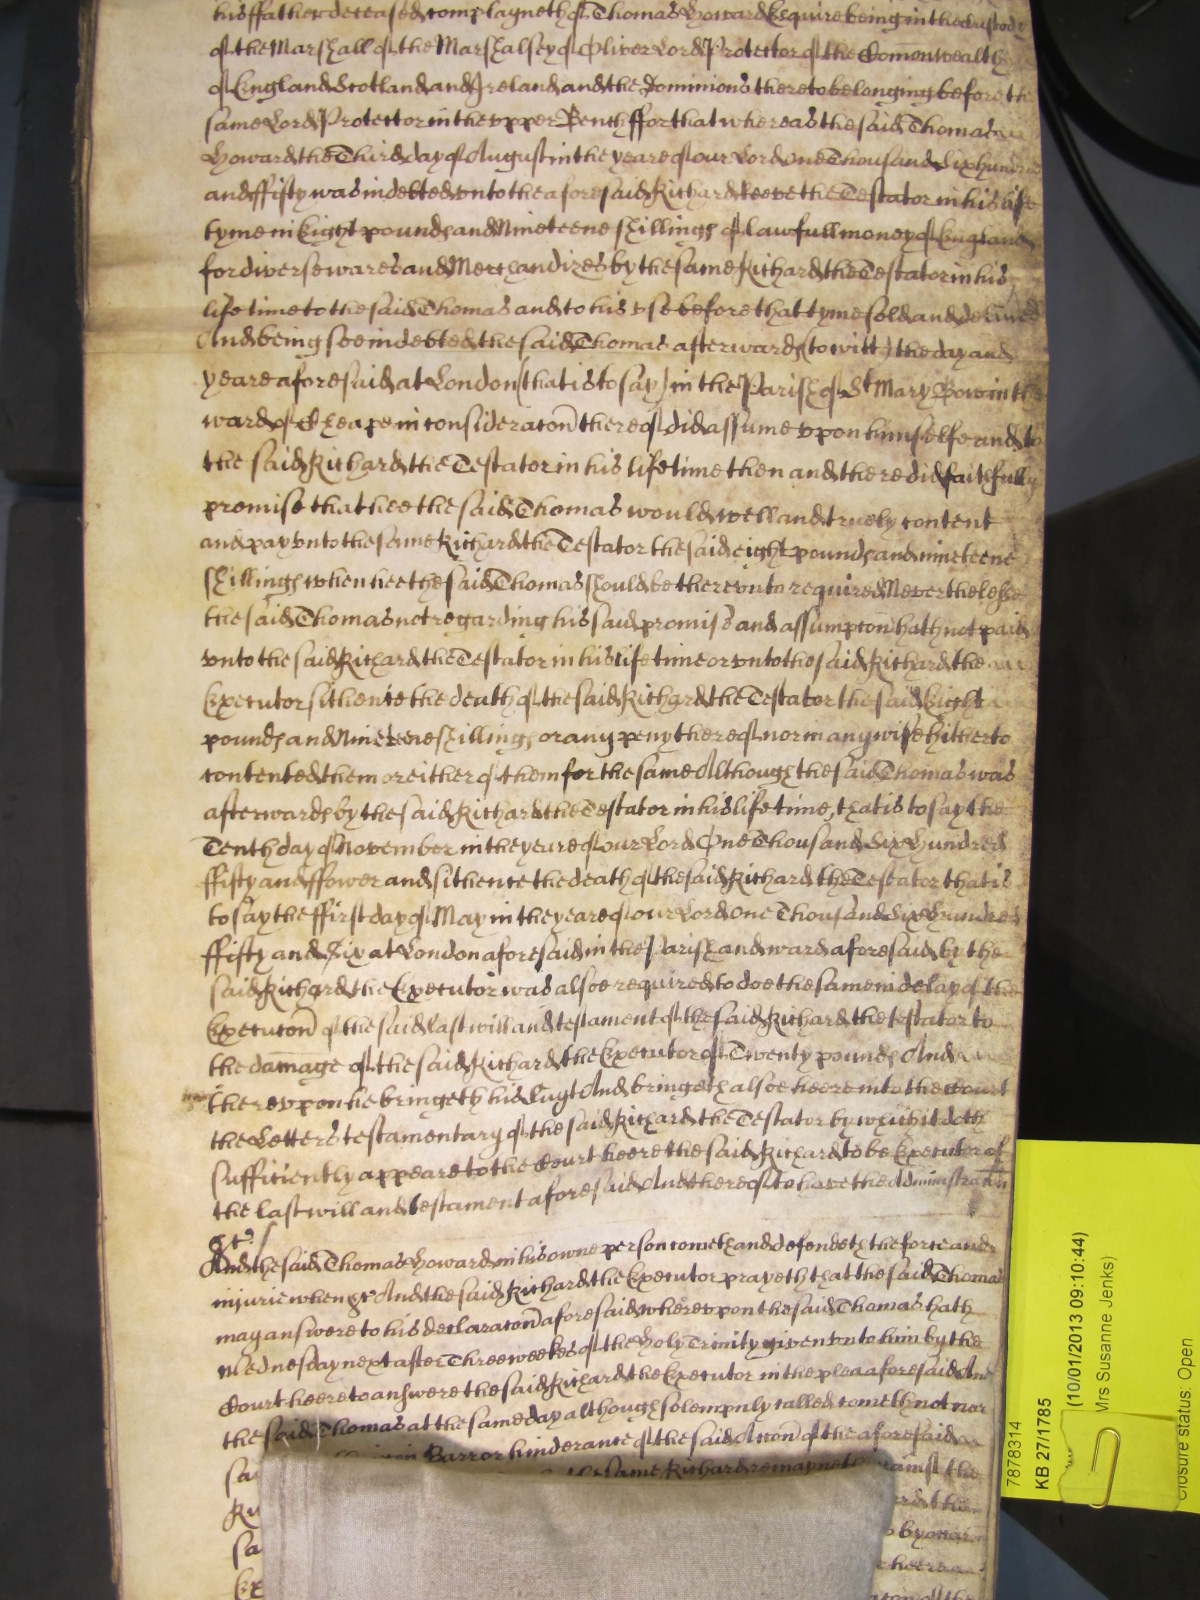 his ffather deceased complayneth of Thomas Howard Esquire being in the Custody
of the Marshall of the Marshalsey of Oliver Lord Protector of the Comonwealth
of England Scotland and Ireland and the Dominions thereto belonging before the
same Lord Protector in the vpper Bench ffor that whereas the said Thomas
Howard the Third day of August in the yeare of our Lord One Thousand Six hundred
and ffifty was indebted vnto the aforesaid Richard the Testator in his life
tyme in Eight pounds and Nineteene shillings of lawfull money of England
for diverse wares and Merchandizes by the same Richard the Testator in his
life time to the said Thomas and to his vse before that tyme sold and delivered
And being soe indebted the said Thomas afterwards (to witt) the day and
yeare aforesaid at London (that is to say) in the Parish of St Mary Bow in the
ward of Cheape in consideracon thereof did assume vpon himselfe and to
the said Richard the Testator in his life time then and there did faithfully
promise that hee the said Thomas would well and truely content
and pay vnto the same Richard the Testator the said eight pounds and nineteene
shillings when hee the said Thomas should be therevnto required Neverthelesse
the said Thomas not regarding his said promise and assumpcon hath not paid
vnto the said Richard the Testator in his life time or vnto the said Richard the
Executor sithence the death of the said Richard the Testator the said Eight
pounds and Nineteene shillings or any peny thereof nor in any wise hitherto
contented them or either of them for the same Although the said Thomas was
afterwards by the said Richard the Testator in his life time, that is to say the
Tenth day of November in the yeare of our Lord One Thousand Six Hundred
ffifty and ffower and sithence the death of the said Richard the Testator that is
to say the ffirst day of May in the yeare of our Lord One Thousand Six Hundred
ffifty and Six at London aforesaid in the Parish and ward aforesaid by the
said Richard the Executor was alsoe required to doe the same in delay of the
Execucon of the said last will and testament of the said Richard the testator to
the damage of the said Richard the Executor of Twenty pounds And
therevpon he bringeth his suyt And bringeth alsoe heere into the Court
the Letters testamentary of the said Richard the Testator by which it doth
sufficiently appeare to the Court heere the said Richard to be Executor of
the last will and testament aforesaid And thereof to have the Administracon
&c.
And the said Thomas Howard in his owne person cometh and defendeth the force and
injurie when &c And the said Richard the Executor prayeth that the said Thomas
may answere to his declaracon aforesaid wherevpon the said Thomas hath
wednesday next after Three weekes of the Holy Trinity given vnto him by the
Court heere to answere the said Richard the Executor in the plea aforesaid And
the said Thomas at the same day although solempnly called cometh not nor
Barr or hinderance of the said Accon of the aforesaid
the same Richard remayneth against the
7878314
KB 27/1785
(10/01/2013 09:10:44)
Mrs Susanne Jenks)
Closure status: Open